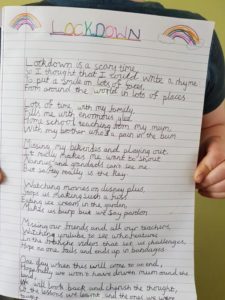 LOCKDOWN
Lockdown is a scary time,
So I thought that I could write a rhyme
To put a smile on lots of faces,
From around the world in lots of places
Lots of time with my family,
Fills me with enormous glee.
Home school teaching from my mum,
With my brother who's a pain in the bum.
Missing my friends and playing out,
It really makes me want to shout
Nannys and grandads can't see me
But safety really is the key
Watching movies on disney plus,
Eating ice cream in the garden,
Makes us burp but we say pardon.
Missing our friends and all our teachers,
Watching youtube to see who features
in the videos that set us challenges,
Hope no one falls and ends up in bandages.
One day when this will come to an end,
Hopefully we won't have driven mum round the
We will look back and cherish the thought,
The lessons we learnt and the ones we were